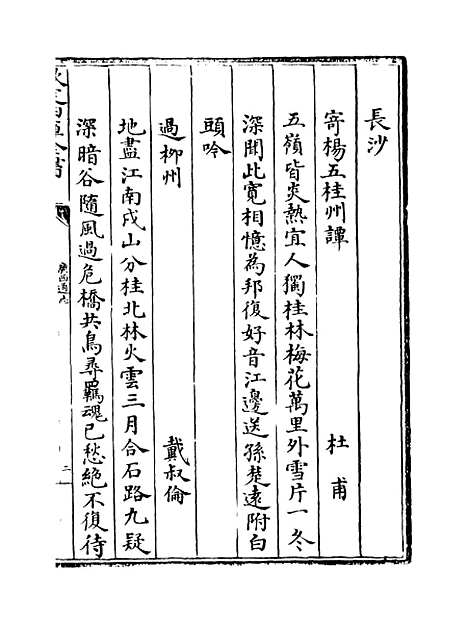 長沙
寄楊五桂州譚 杜甫
五嶺皆炎熱宜人獨桂林梅花萬里外雪片一冬
深聞此寛相憶為邦復好音江邊送孫楚遠附白
頭吟
過柳州 戴叔倫
地盡江南戍山分桂北林火雲三月合石路九疑
深暗谷隨風過危橋共鳥尋羈魂已愁絶不復待
欽定四庫全書
廣西通志